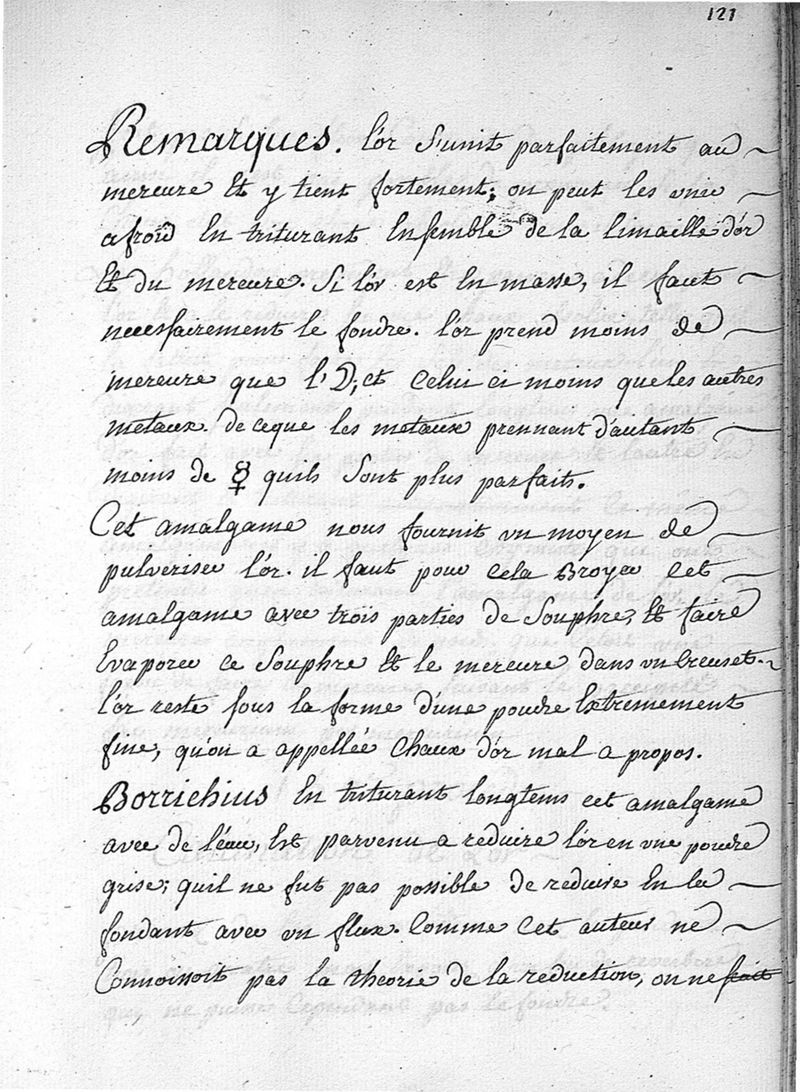 121
Remarques. l'or s'unit parfaitement au
mercure et y tient fortement; on peut les unir
afroid en triturant ensemble de la limaille d'or
et du mercure. Si l'or est en masse, il faut
necessairement le fondre. l'or prend moins de
mercure que l'☽, et celui ci moins que les autres
metaux. de ceque les metaux prennant d'autant
moins de ☿ quils sont plus parfaits.
Cet amalgame nous fournit un moyen de
pulveriser l'or. il faut pour cela Broyer cet
amalgame avec trois parties de Souphre, et faire
Evaporer ce Souphre et le mercure dans un Creuset.
l'or reste sous la forme d'une poudre Extremement
fine, qu'on a appellée Chaux d'or mal a propos.
Borrichius en triturant longtems cet amalgame
avec de l'eau, Est parvenu a reduire l'or en une poudre
grise; quil ne fut pas possible de reduire En la
fondant avec un flux. Comme cet auteur ne
Connoissoit pas la theorie de la reduction, on ne sait